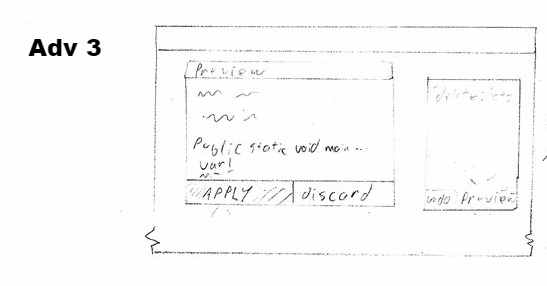 Adv 3
Preview
Public static void main...
var1
APPLY discard
undo Preview